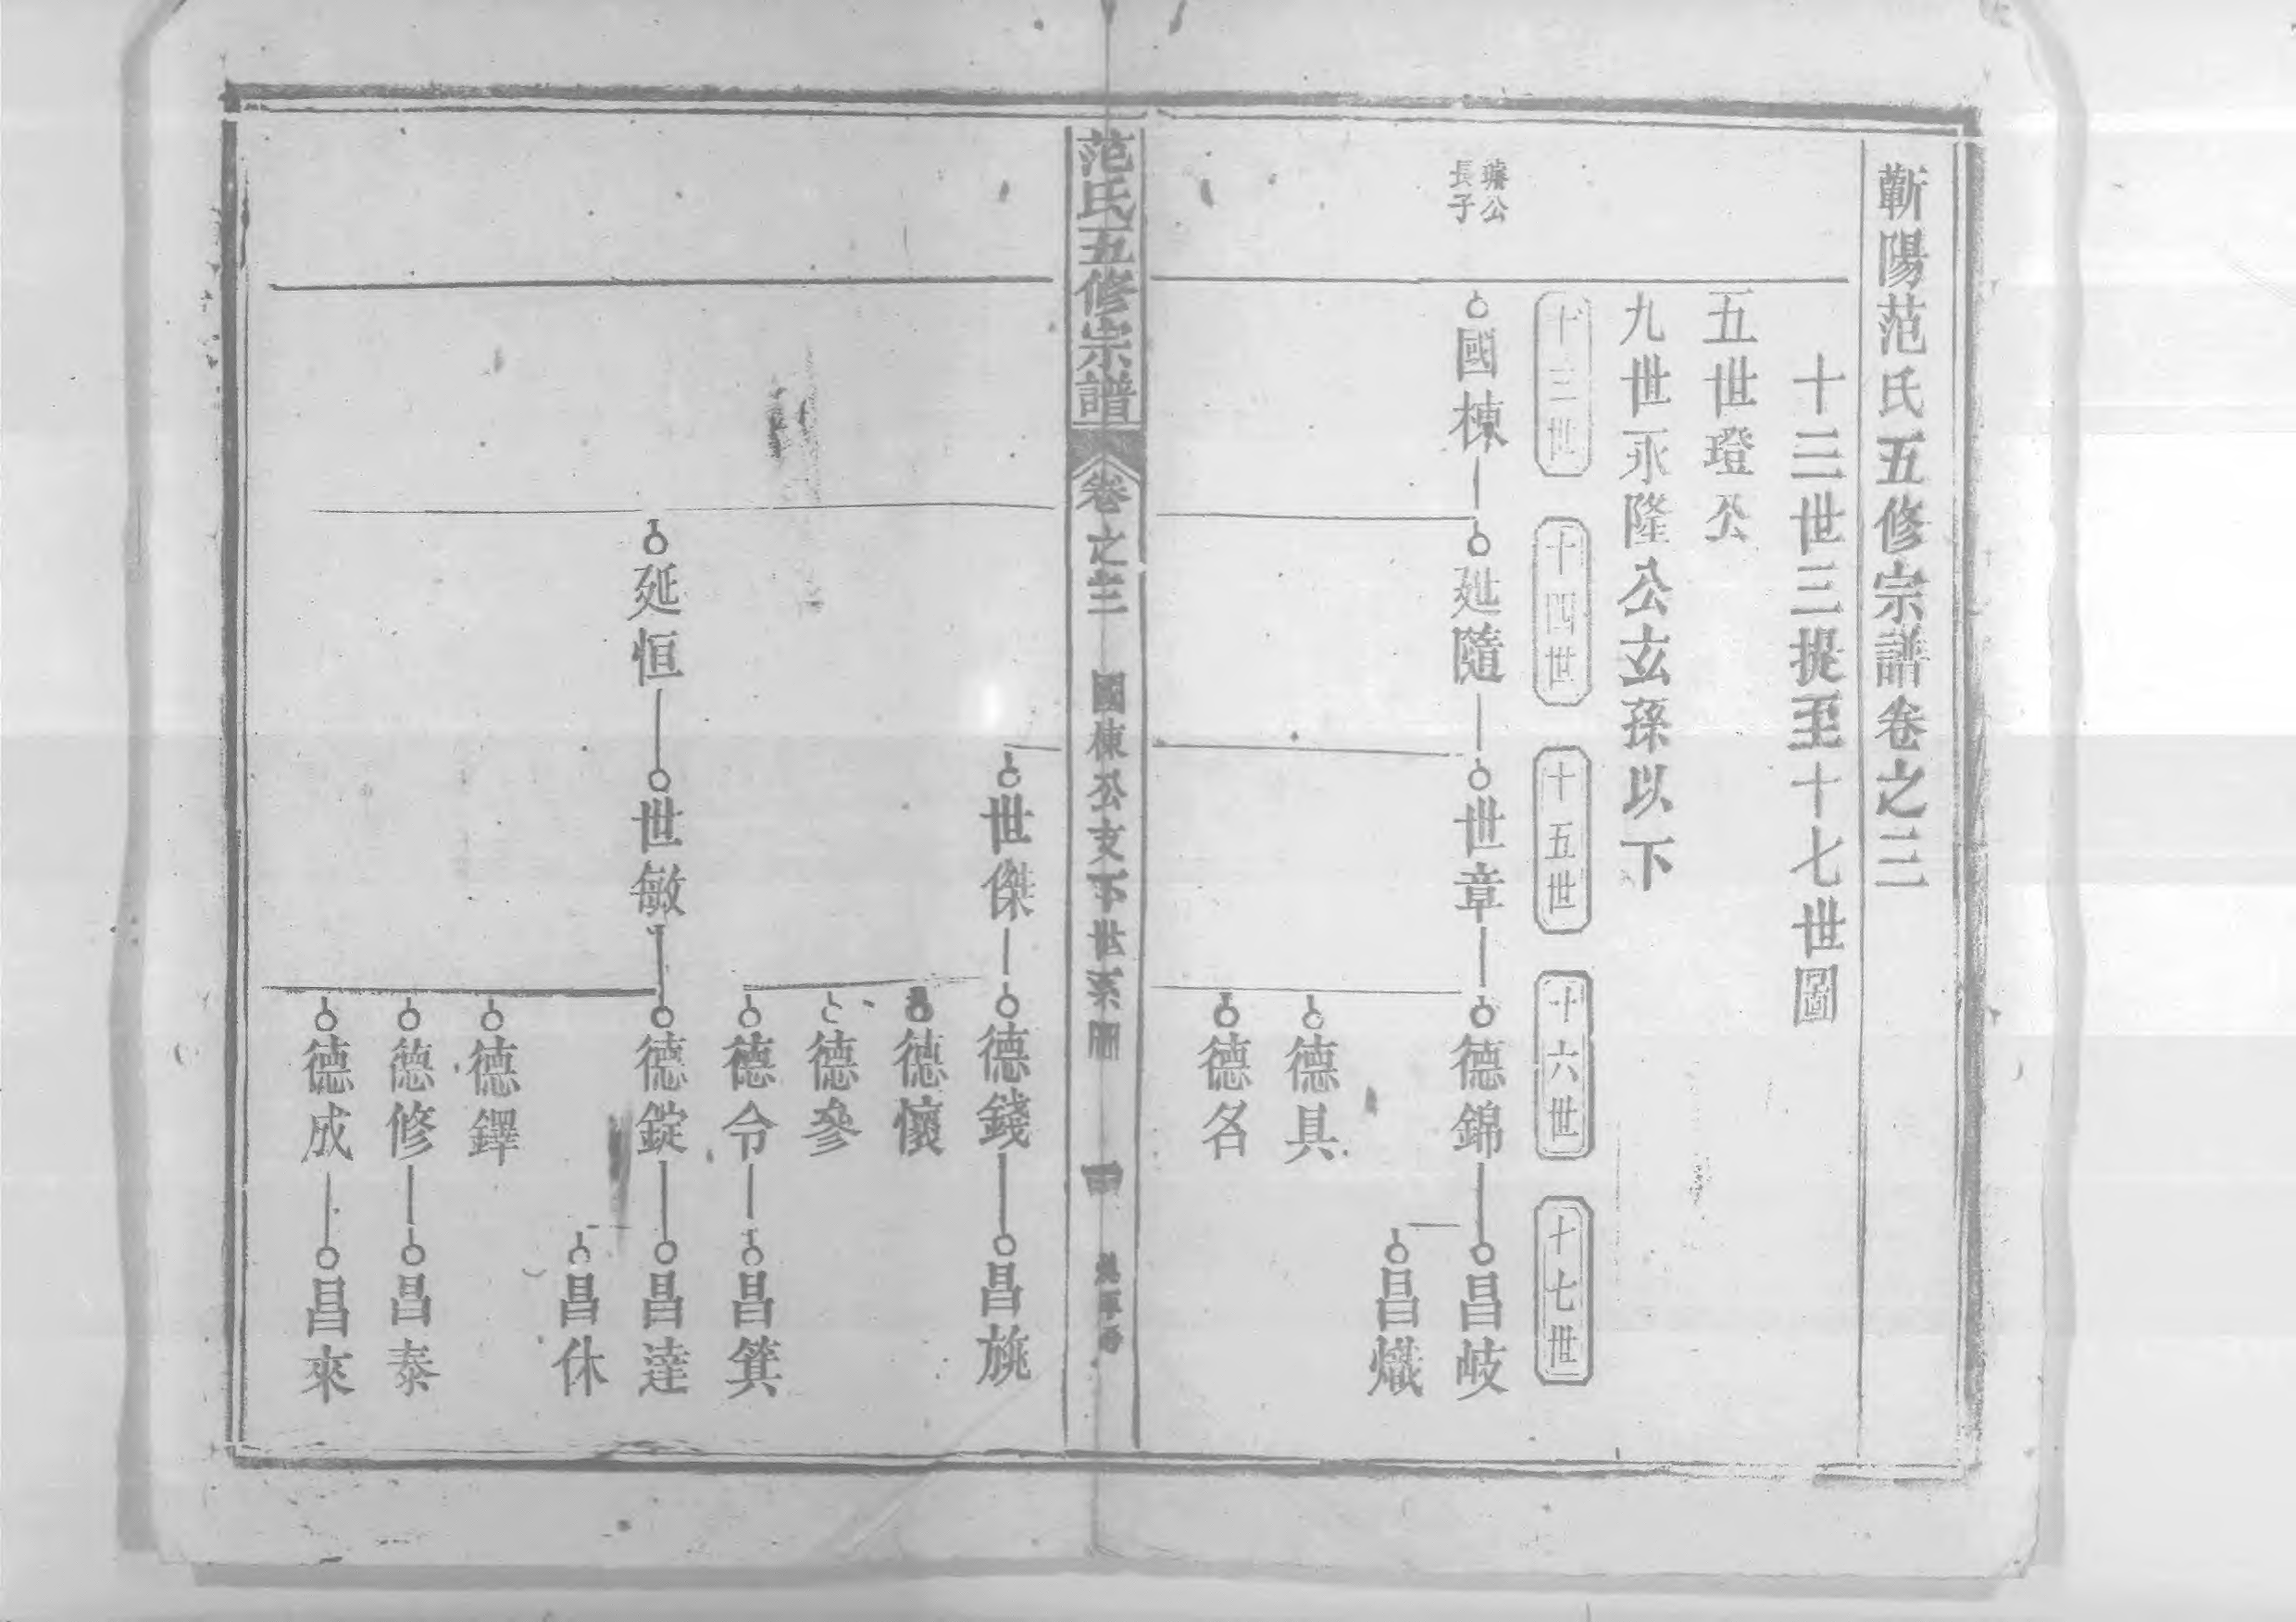 蘄陽范氏五修宗譜卷之二
十三世三提至十七世圖
五世璒公
九世永隆公玄孫以下
十三世
十四世
十五世
十六世
十七世
公
長子
國棟
延隨
世章
德錦
昌岐
昌熾
德具
德名
范氏五修宗譜
卷之二
國棟公支下世系圖
世傑
德錢
昌旐
德懷
德參
德令
昌箕
延恒
世敏
德錠
昌達
昌休
德鐸
德修
昌泰
德成
昌來